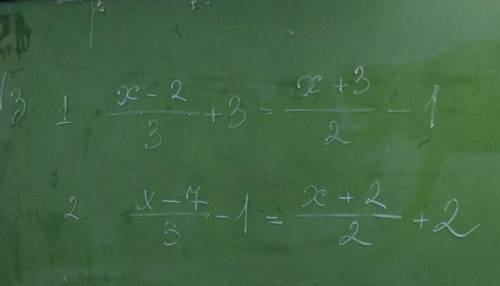 №3 1. (x-2)/3 + 3 = (x+3)/2 - 1
2. (x-7)/3 - 1 = (x+2)/2 + 2